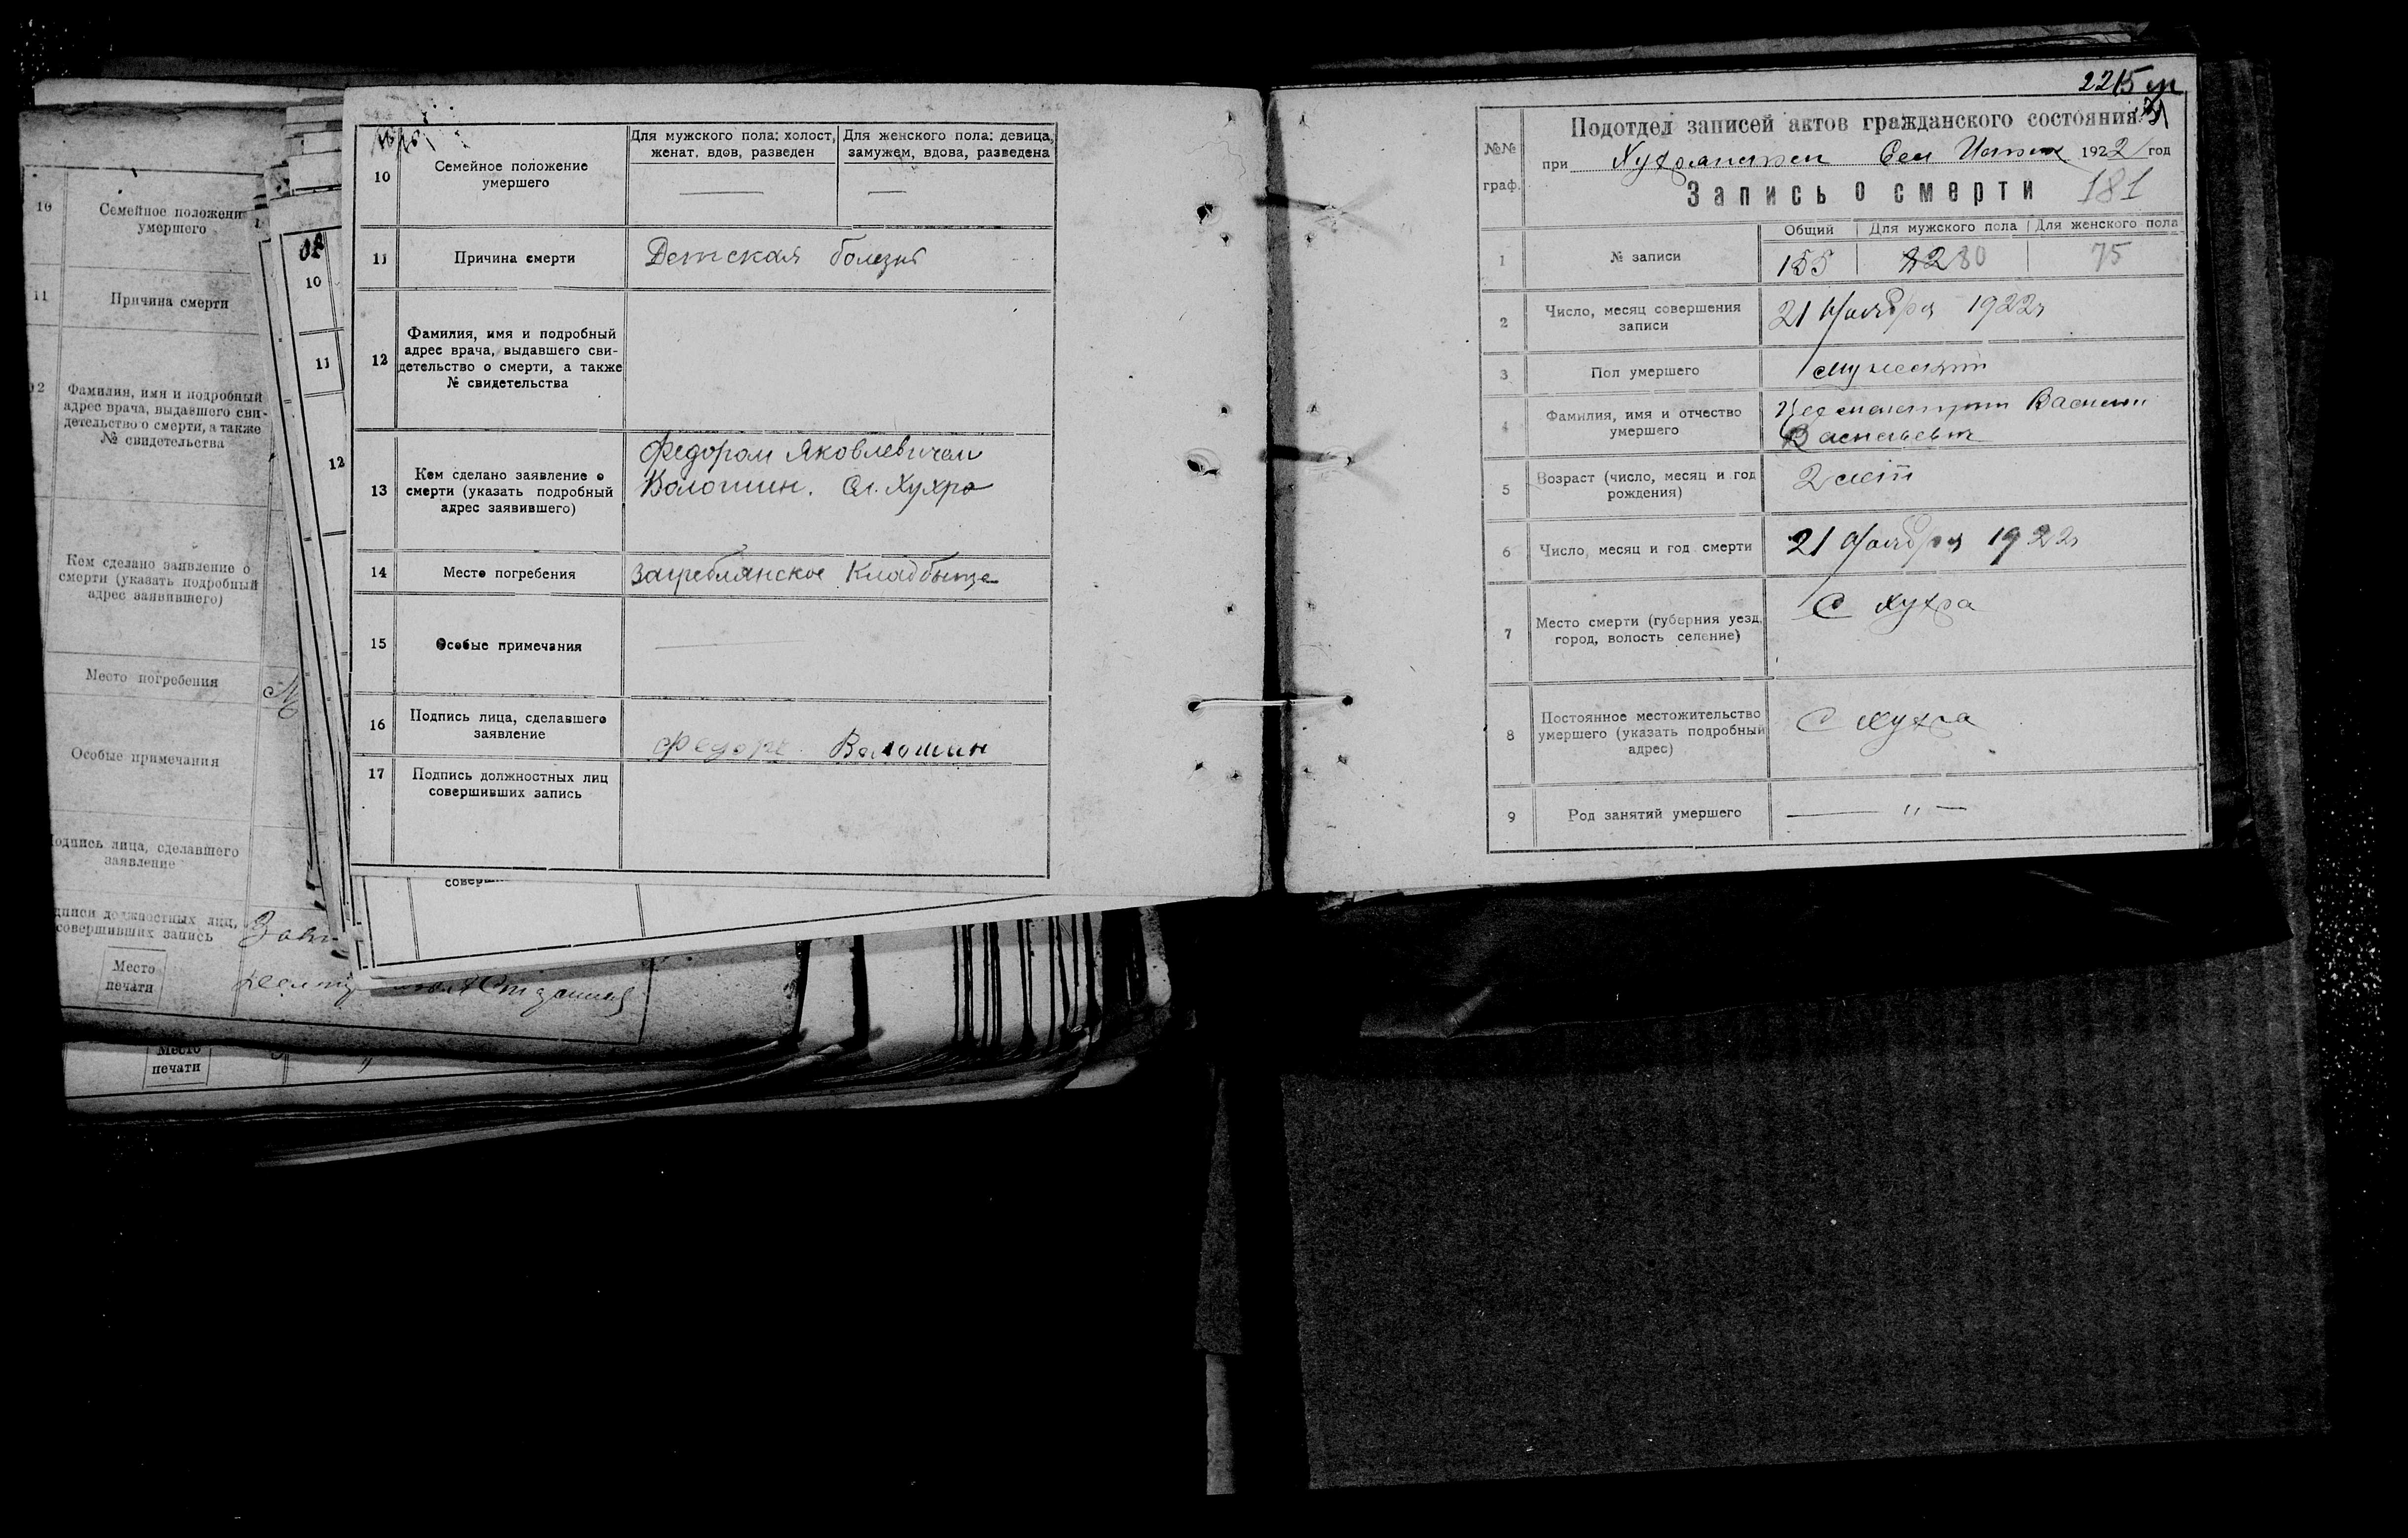 10
Семейное положени
умершего
11
Причина смерти
12
Фамилия, имя и подробный
адрес врача, выдавшего сви-
детельство о смерти, а также
№ свидетельства
Кем сделано заявление о
смерти (указать подробный
адрес заявившего)
Место погребения
Особые примечания
Подпись лица, сделавшего
заявление
совершивших запись
Место
печати
Место
печати
10
11
12
10
Семейное положение
умершего
Для мужского пола: холост,
женат, вдов, разведен
Для женского пола: девица,
замужем, вдова, разведена
11
Причина смерти
Детская болезнь
12
Фамилия, имя и подробный
адрес врача, выдавшего сви-
детельство о смерти, а также
№ свидетельства
13
Кем сделано заявление о
смерти (указать подробный
адрес заявившего)
Федором Яковлевичем
Волошин. Сл. Хухра
14
Место погребения
Загреблянское Кладбыще
15
Особые примечания
16
Подпись лица, сделавшего
заявление
Федоръ Волошин
17
Подпись должностных лиц
совершивших запись
2215
№№
граф.
Подотдел записей актов гражданского состояния
при Сел 1922 год
Запись о смерти 181
Общий
Для мужского пола
Для женского пола
1
№ записи
155
82 80
75
2
Число, месяц совершения
записи
21 Ноября 1922г
3
Пол умершего
мужеский
4
Фамилия, имя и отчество
умершего
Василий
Васильевич
5
Возраст (число, месяц и год
рождения)
2 лет
6
Число, месяц и год смерти
21 Ноября 1922г
7
Место смерти (губерния уезд,
город, волость селение)
С Хухра
8
Постоянное местожительство
умершего (указать подробный
адрес)
С Хухра
9
Род занятий умершего
— " —